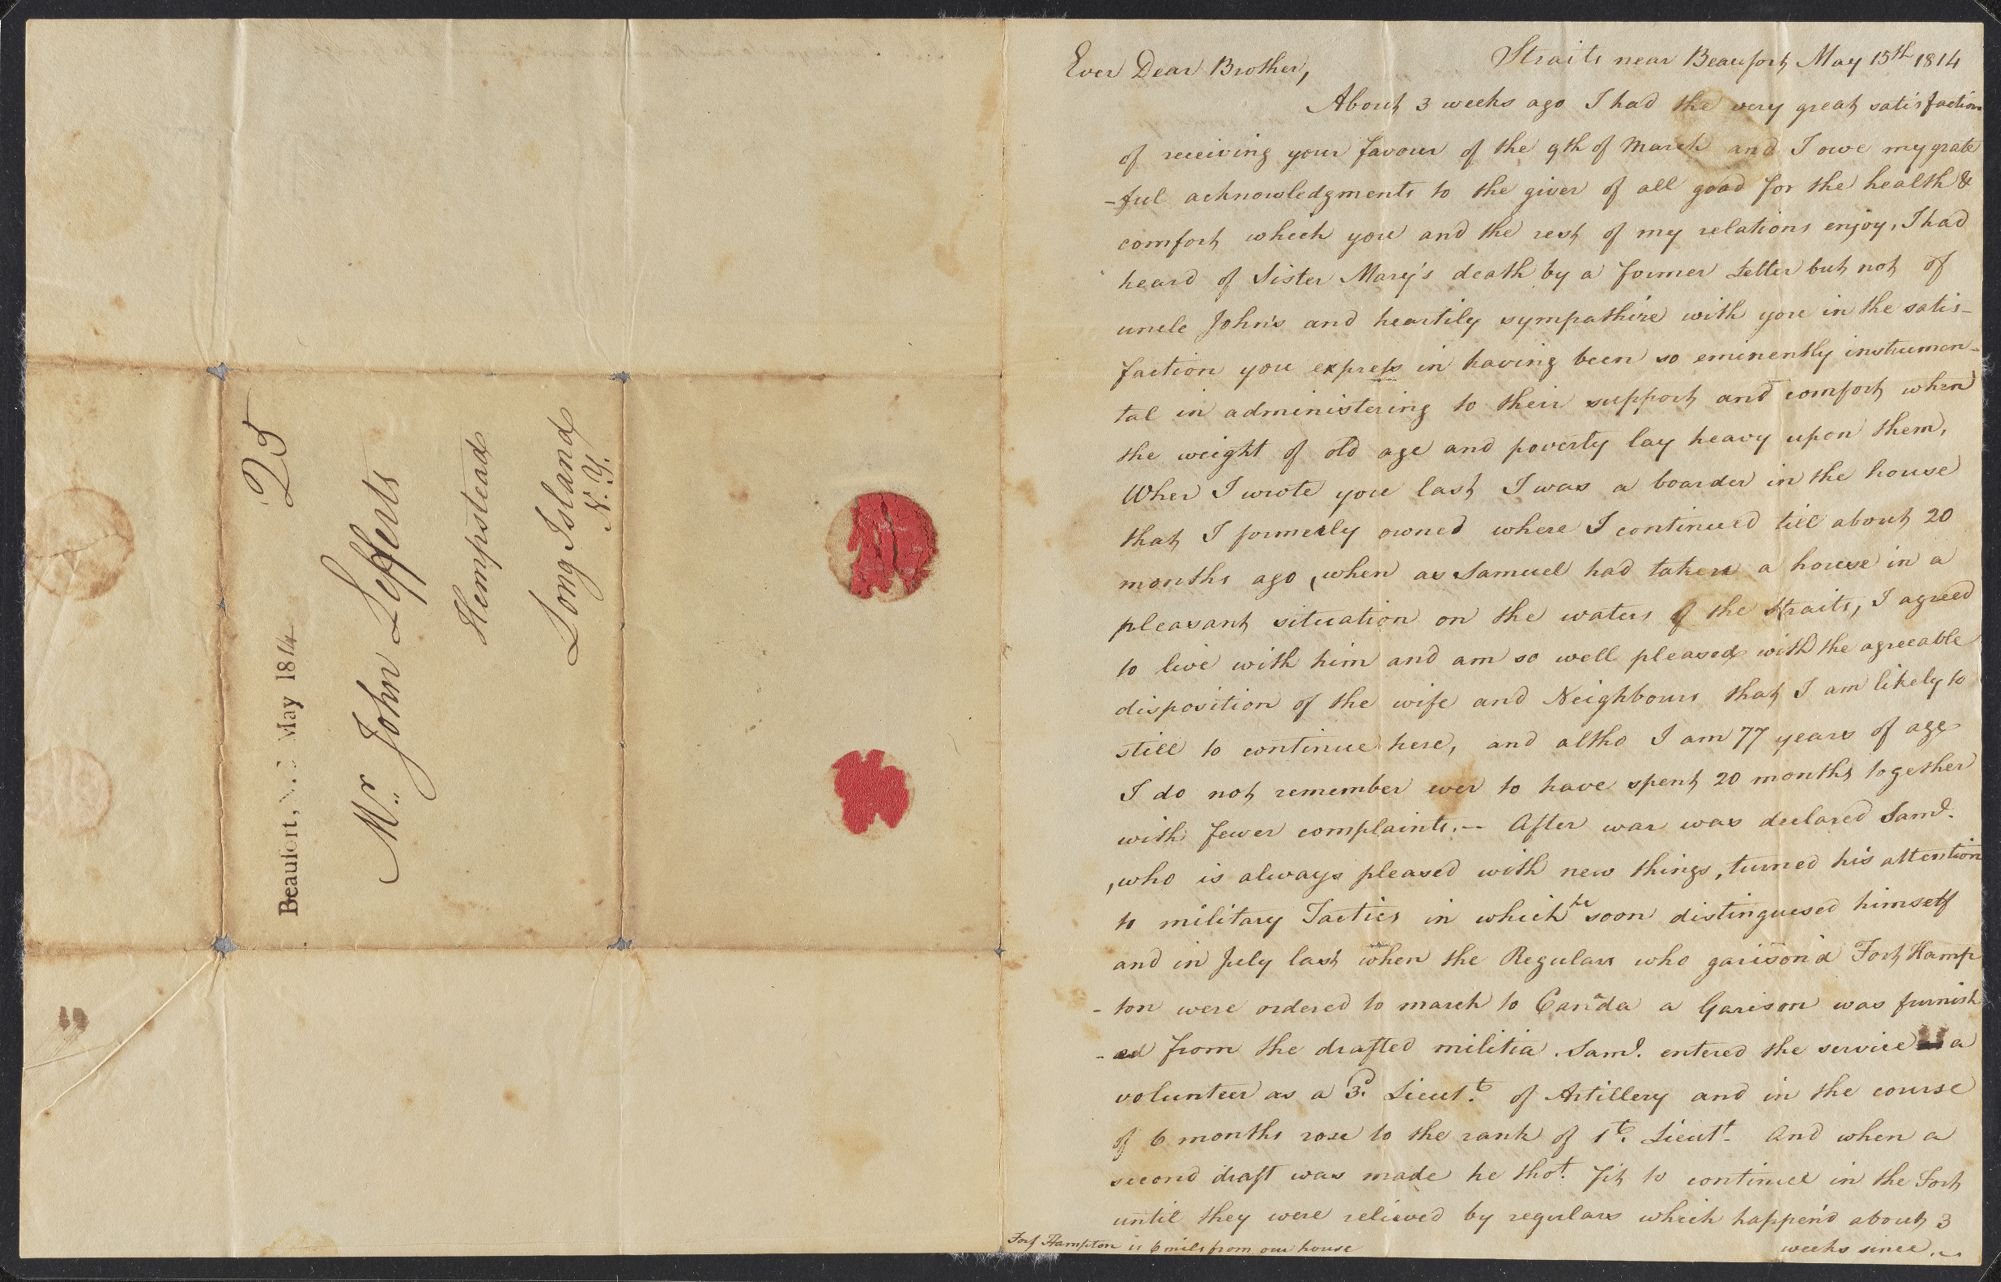 25
Beaufort, N.C. May 1814
Mr. John Lefferts
Hempstead
Long Island
N.Y.
Straits near Beaufort May 15th 1814
Ever Dear Brother,
About 3 weeks ago I had the very great satisfaction
of receiving your favour of the 9th of March and I owe my grate
-ful acknowledgments to the giver of all good for the health &
comfort which you and the rest of my relations enjoy, I had
heard of Sister Mary's death by a former Letter but not of
uncle John's and heartily sympathize with you in the satis-
faction you express in having been so eminently instrumen-
tal in administering to their support and comfort when
the weight of old age and poverty lay heavy upon them,
When I wrote you last I was a boarder in the house
that I formerly owned where I continued till about 20
months ago, when as Samuel had taken a house in a
pleasant situation on the waters of the Straits, I agreed
to live with him and am so well pleased with the agreeable
disposition of the wife and Neighbours that I am likely to
still to continue here, and altho I am 77 years of age
I do not remember ever to have spent 20 months together
with fewer complaints.— After war was declared Saml.
, who is always pleased with new things, turned his attention
to military Tactics in which he soon distinguesed himself
and in July last when the Regulars who garison'd Fort Hamp
-ton were ordered to march to Canada a Garison was furnish
-ed from the drafted militia. Saml. entered the service a
volunteer as a 3d. Lieut.t of Artillery and in the course
of 6 months rose to the rank of 1t. Lieutt. And when a
second draft was made he thot. fit to continue in the Fort
until they were relieved by regulars which happen'd about 3
weeks since.
Fort Hampton is 6 mils from our house